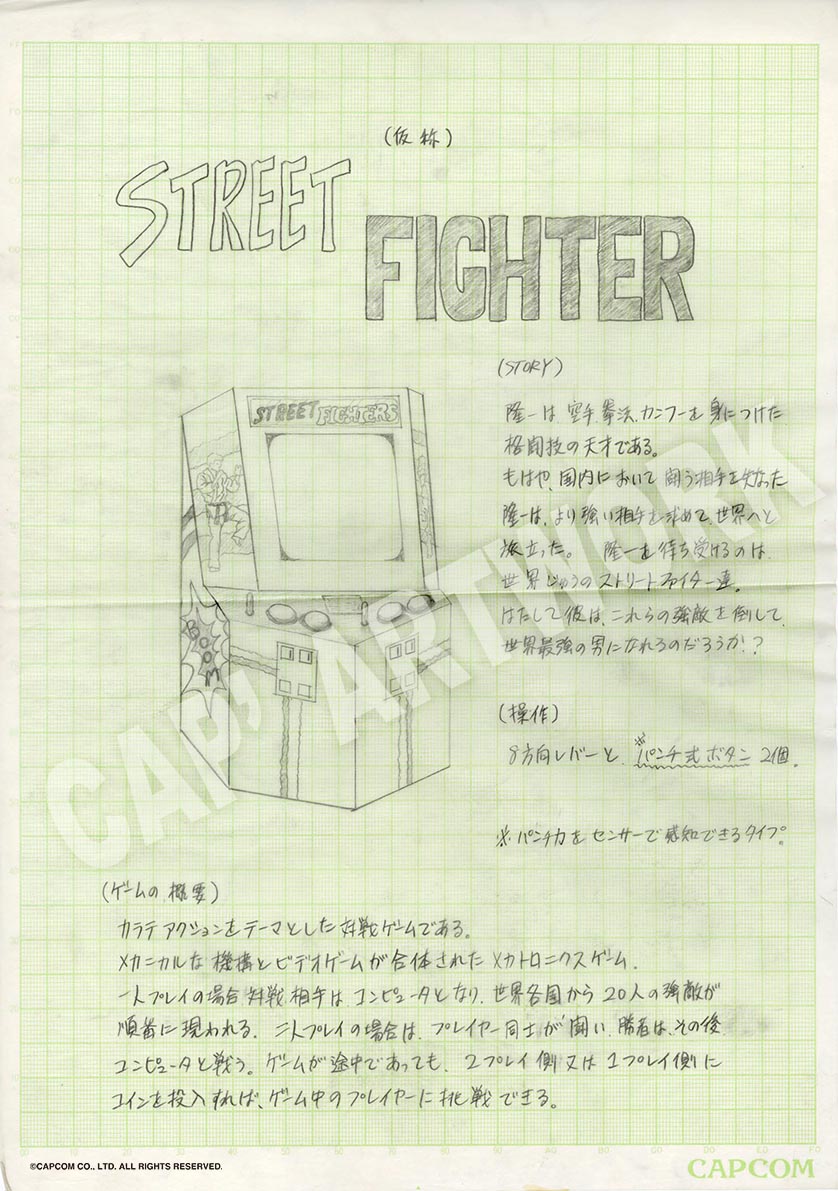 (仮称)
STREET
FIGHTER
STREET FIGHTERS
BOOM
(STORY)
隆一は空手、拳法、カンフーを身につけた
格闘技の天才である。
もはや、国内において闘う相手を失なった
隆一は、より強い相手を求めて、世界へと
旅立った。 隆一を待ち受けるのは、
世界じゅうのストリートファイター達。
はたして彼は、これらの強敵を倒して、
世界最強の男になれるのだろうか!?
(操作)
8方向レバーと、※パンチ式ボタン 2個。
※パンチ力をセンサーで感知できるタイプ。
(ゲームの概要)
カラテアクションをテーマとした対戦ゲームである。
メカニカルな機構とビデオゲームが合体されたメカトロニクスゲーム.
一人プレイの場合 対戦相手は、コンピュータとなり、世界各国から20人の強敵が
順番に現われる. 二人プレイの場合は、プレイヤー同士が闘い、勝者は、その後
コンピュータと戦う。ゲームが途中であっても、2プレイ側又は1プレイ側に
コインを投入すれば、ゲーム中のプレイヤーに挑戦できる。
CAP' ARTWORK
©CAPCOM CO., LTD. ALL RIGHTS RESERVED.
CAPCOM